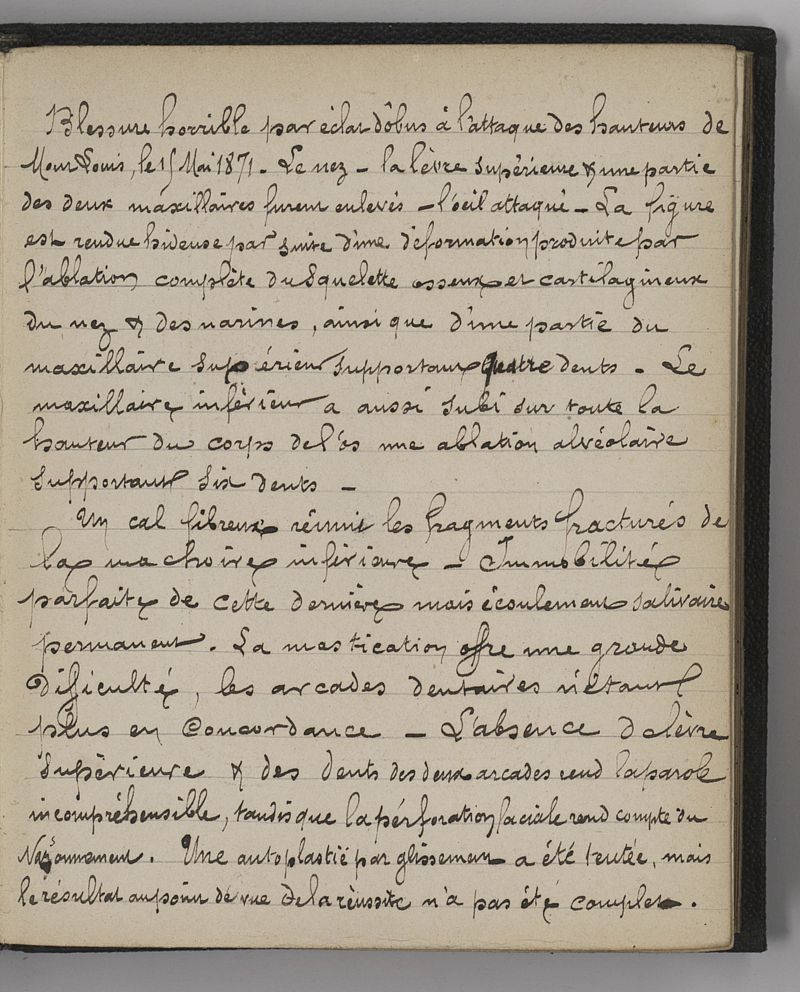 Blessure horrible par éclat d'ôbus à l'attaque des hauteurs de
Mont Louis, le 15 Mai 1871. Le nez - la lèvre supérieure & une partie
des deux maxillaires furent enlevés - l'oeil attaqué - La figure
est rendue hideuse par suite d'une déformation produite par
l'ablation complète du squelette osseux et cartilagineux
du nez & des narines, ainsi que d'une partie du
maxillaire supérieur supportant quatre dents - Le
maxillaire inférieur a aussi subi sur toute la
hauteur du corps de l'ôs une ablation alvéolaire
supportant six dents -
Un cal fibreux réunit les fragments fracturés de
la machoire inférieure - Immobilité
parfaite de cette dernière mais écoulement salivaire
permanent. La mastication offre une grande
difficulté, les arcades dentaires n'étant
plus en concordance - L'absence d lèvre
supérieure & des dents des deux arcades rend la parole
incompréhensible, tandis que la pérforation faciale rend compte du
Nazonnement. Une autoplastië par glissement a été tentée, mais
le résultat au point de vue de la réussite n'a pas été complet.